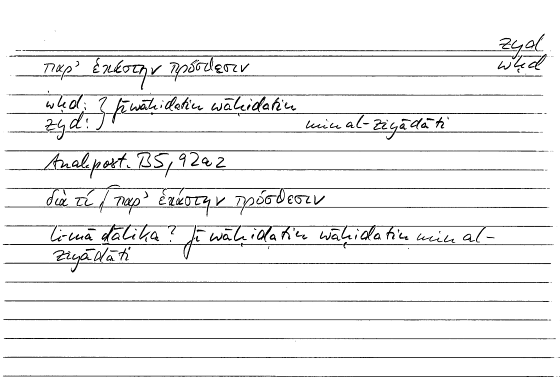 zyd
παρ' ἑκάστην πρόσθεσιν wḥd
wḥd: } fī wāḥidatin wāḥidatin
zyd: } min al-ziyādāti
Anal. post. B5, 92a2
διὰ τί ⌈ παρ' ἑκάστην πρόσθεσιν
li-mā ḏālika? fī wāḥidatin wāḥidatin min al-
ziyādāti